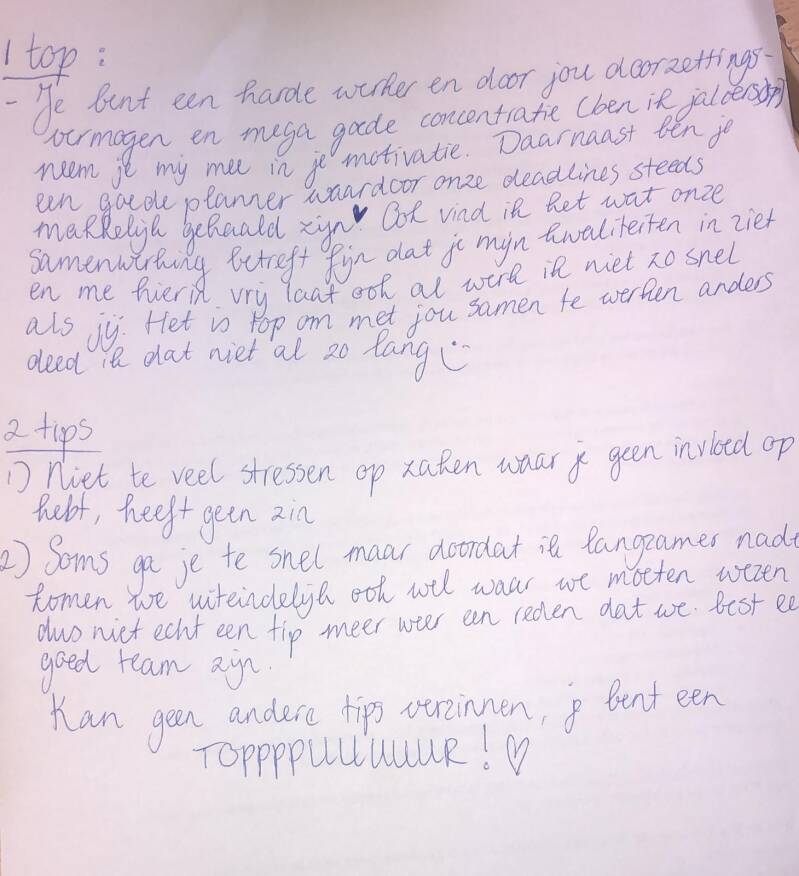 1 top :
- Je bent een harde werker en door jou doorzettings-
vermogen en mega goede concentratie (ben ik jaloers op)
neem je mij mee in je motivatie. Daarnaast ben je
een goede planner waardoor onze deadlines steeds
makkelijk gehaald zijn! Ook vind ik het wat onze
samenwerking betreft fijn dat je mijn kwaliteiten in ziet
en me hierin vrij laat ook al werk ik niet zo snel
als jij. Het is top om met jou samen te werken anders
deed ik dat niet al zo lang
2 tips
1) Niet te veel stressen op zaken waar je geen invloed op
hebt, heeft geen zin
2) Soms ga je te snel maar doordat ik langzamer nade
komen we uiteindelijk ook wel waar we moeten wezen
dus niet echt een tip meer weer een reden dat we best ee
goed team zijn.
Kan geen andere tips verzinnen, je bent een
TOPPPPUUUUUUR! ♡